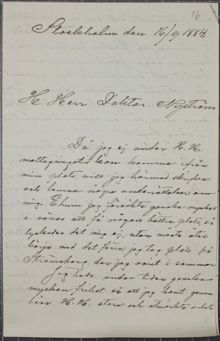 16
Stockholm den 16/9 1884
H. Herr Doktor Nyström
Då jag ej under H. H.
mottagningstid kan komma ifrån
min plats vill jag härmed skrifva
och lemna några underrättelser om
mig. Ehuru jag försökte ganska mycket
i våras att få någon bättre plats, så
lyckades det mig ej, utan måste åter
börja med det förra, jag tog plats på
Strömsborg der jag varit i sommar
Jag hade under tiden ganska
mycken frihet så att jag kunt genom
H. H. stora och